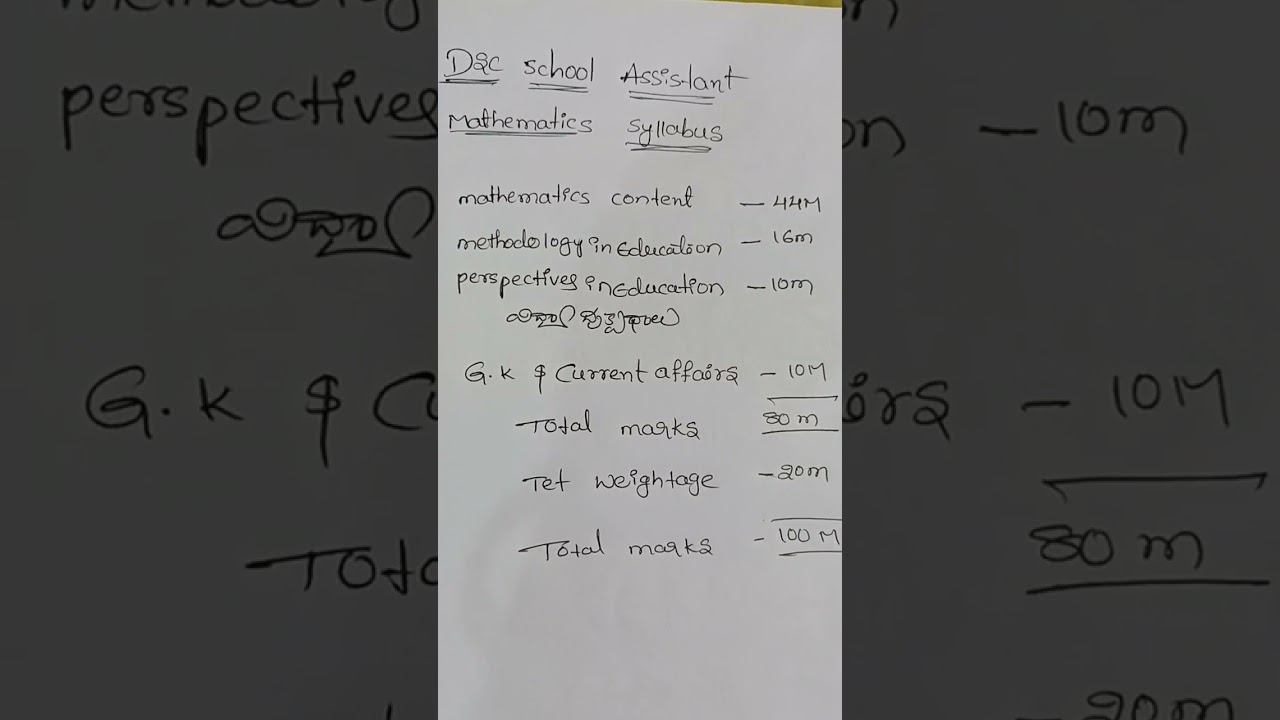 DSC School Assistant
Mathematics Syllabus
mathematics content - 44M
methodology in Education - 16m
perspectives in Education - 10m
విద్యా దృక్పథాలు
G.K & Current affairs - 10M
Total marks 80 m
Tet weightage - 20m
Total marks - 100 M